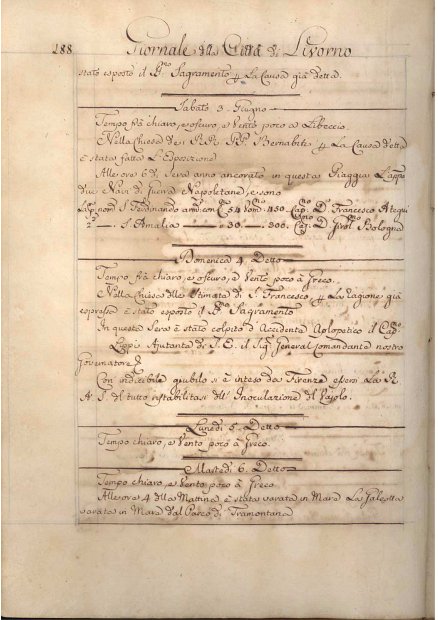 188 Giornale della Città di Livorno
stato esposto il Sagramento La Causa già detta.
Sabato 3. Giugno
Tempo frà chiaro, e oscuro, e Vento poco a Libeccio.
Nella Chiesa de i RR. PP. Bernabiti La Causa detta
è stata fatta L'Esposizione
Alle ore 6 di Sera anno ancorato in questa Spiaggia L'appo
due Navi di Guerra Napoletane, e sono
nom: S. Ferdinando Con 54 450 Cap: D: Francesco
2: S. Amalia 30. 300. Cap: D: Bologna
Domenica 4. Detto
Tempo frà chiaro, e oscuro, e Vento poco à Greco.
Nella Chiesa delle Stimate di S. Francesco La ragione già
espressa è stato esposto il Sagramento
In questa Sera è stato colpito d'Accidente Aplopetico il
Ajutante di S. E. il Sig: General Comandante nostro
Governatore
Con indicibile giubilo si è inteso da Firenze esser La R.
A. S. del tutto ristabilitasi dell'Inoculazione del Vajolo.
Lunedi 5. Detto
Tempo chiaro, e Vento poco à Greco.
Martedi 6. Detto
Tempo chiaro, e Vento poco à Greco
Alle ore 4 della Mattina è stata varata in Mare La Galeotta
varata in Mare dal Parco di Tramontana